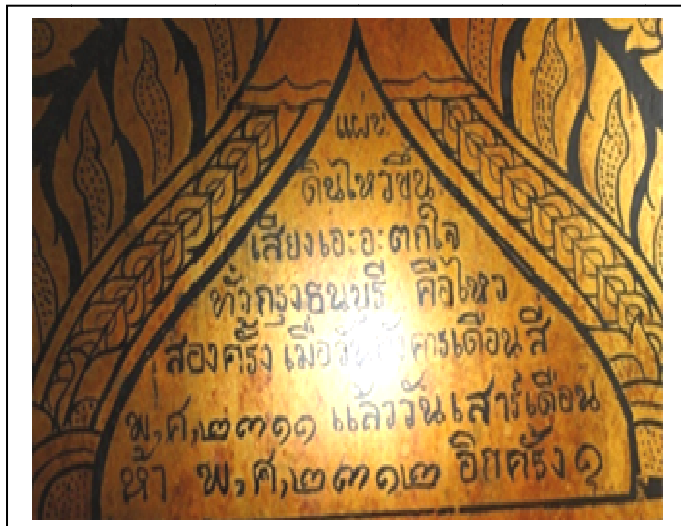 แผ่น
ดินไหวขึ้น
เสียงเอะอะตกใจ
ทั่วกรุงธนบุรี คือไหว
สองครั้ง เมื่อวันอังคารเดือนสี่
พ,ศ,๒๓๑๑ แล้ววันเสาร์เดือน
ห้า พ,ศ,๒๓๑๒ อีกครั้ง ๑